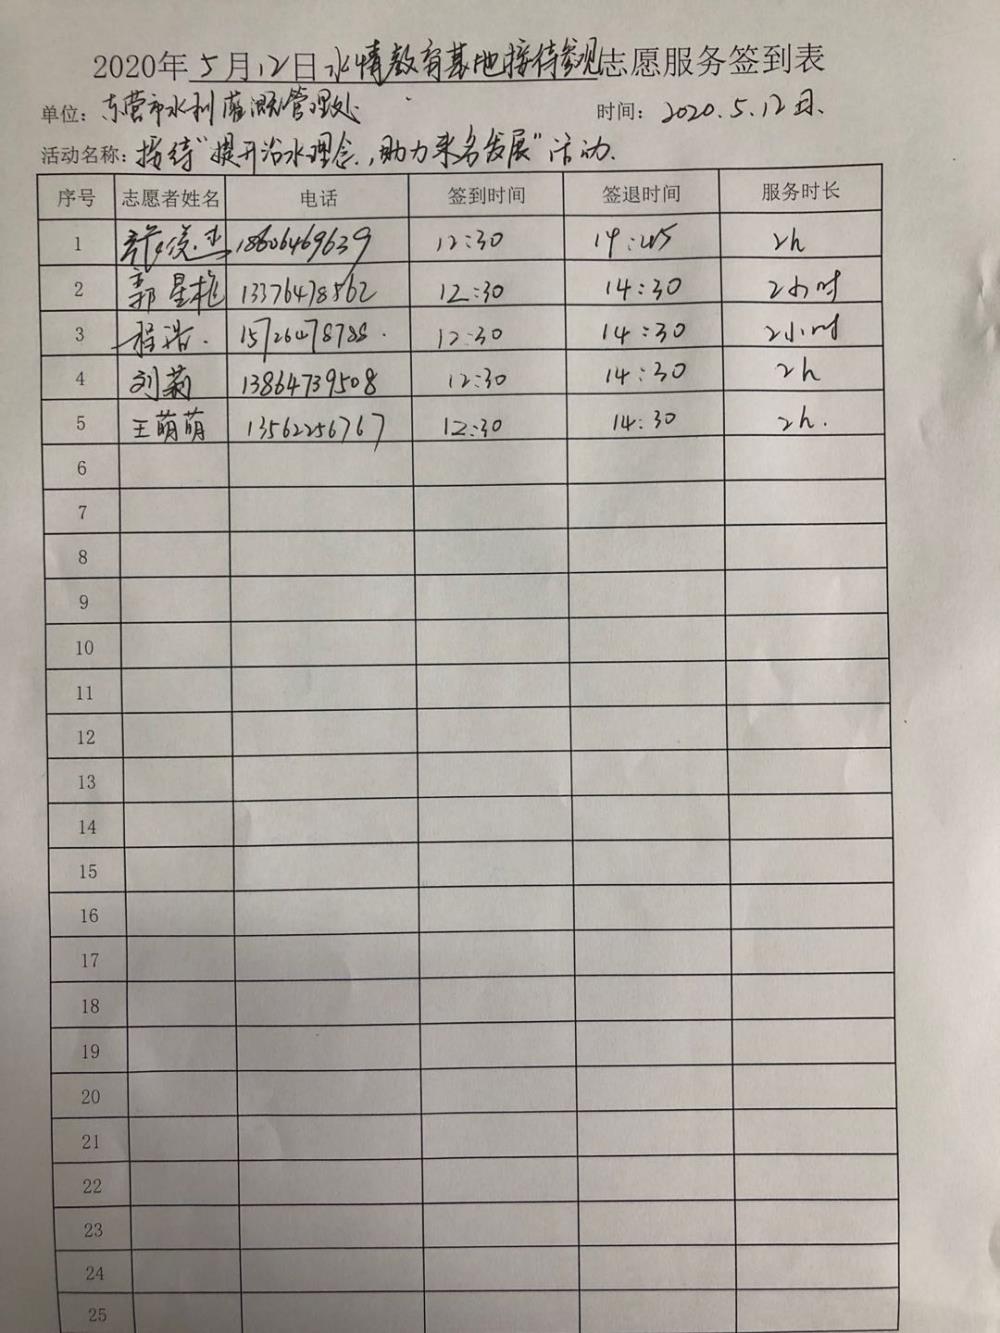 2020年 5月12日水情教育基地接待参观志愿服务签到表
单位: 东营市水利灌溉管理处 时间: 2020.5.12日.
活动名称: 接待"提升治水理念,助力来名发展"活动.
序号 志愿者姓名 电话 签到时间 签退时间 服务时长
1 18606469639 12:30 14:45 2h
2 郭星 13376478562 12:30 14:30 2小时
3 程浩. 15726478788. 12:30 14:30 2小时
4 刘菊 13864739508 12:30 14:30 2h
5 王萌萌 13562256767 12:30 14:30 2h.
6
7
8
9
10
11
12
13
14
15
16
17
18
19
20
21
22
23
24
25